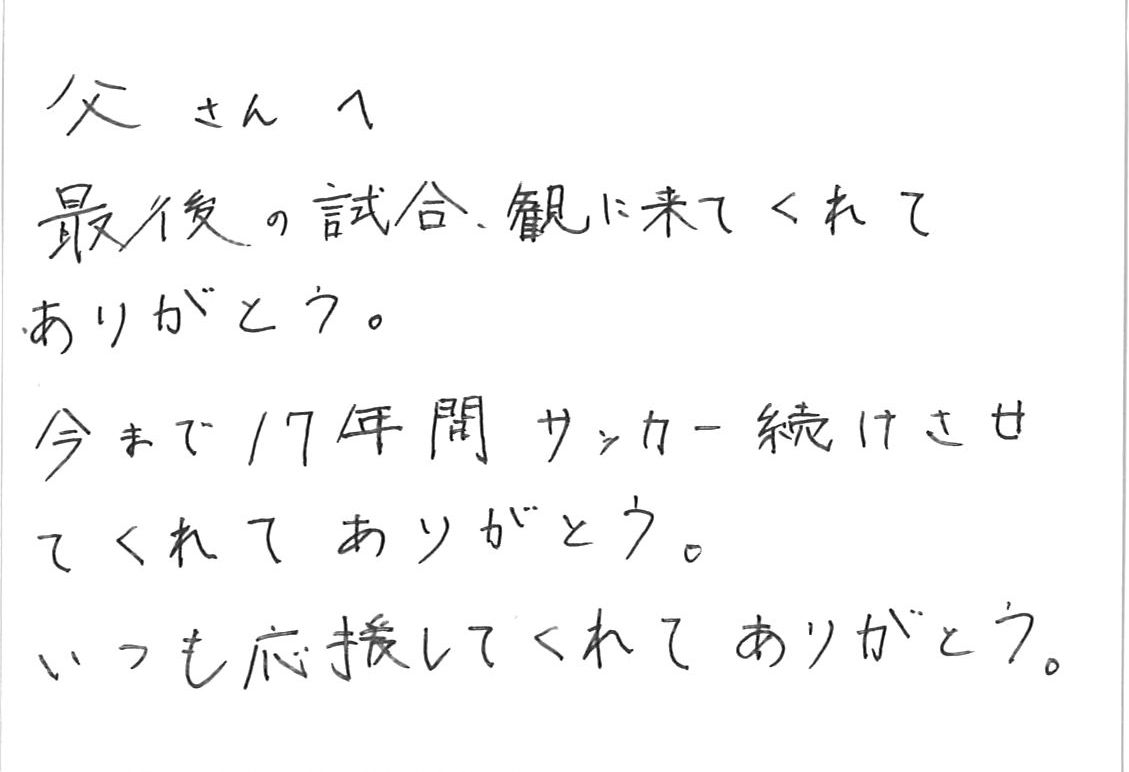 父さんへ
最後の試合、観に来てくれて
ありがとう。
今まで17年間サッカー続けさせ
てくれてありがとう。
いつも応援してくれてありがとう。